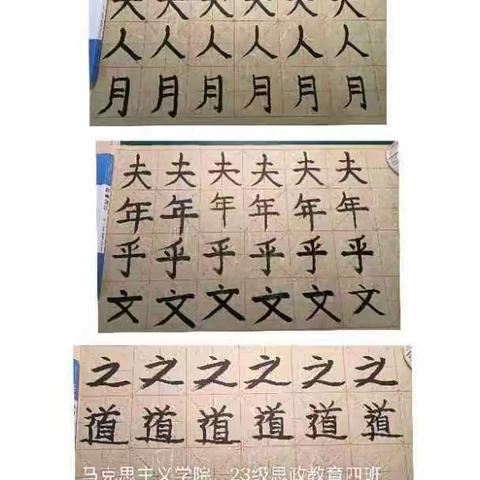 人人人人人人
月月月月月月
夫夫夫夫夫夫
年年年年年年
乎乎乎乎乎乎
文文文文文文
之之之之之之
道道道道道道
马克思主义学院 23级思政教育四班